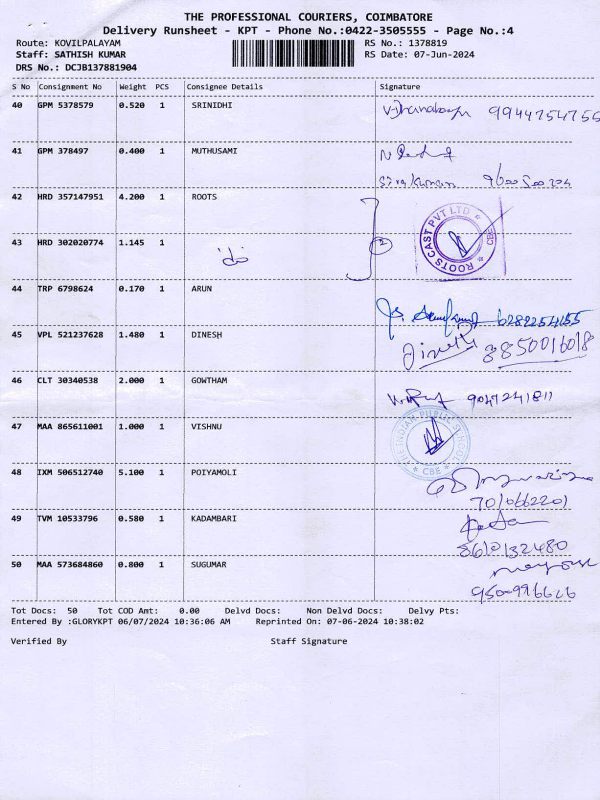 THE PROFESSIONAL COURIERS, COIMBATORE
Delivery Runsheet - KPT - Phone No.:0422-3505555 - Page No.:4
Route: KOVILPALAYAM RS No.: 1378819
Staff: SATHISH KUMAR RS Date: 07-Jun-2024
DRS No.: DCJB137881904
S No Consignment No Weight PCS Consignee Details Signature
40 GPM 5378579 0.520 1 SRINIDHI
41 GPM 378497 0.400 1 MUTHUSAMI
42 HRD 357147951 4.200 1 ROOTS
ROOTS CAST PVT LTD CBE
43 HRD 302020774 1.145 1 2
44 TRP 6798624 0.170 1 ARUN
45 VPL 521237628 1.480 1 DINESH
Dinesh 8850016018
46 CLT 30340538 2.000 1 GOWTHAM
9047241811
47 MAA 865611001 1.000 1 VISHNU
THE INDIAN PUBLIC CBE
48 IXM 506512740 5.100 1 POIYAMOLI
7010662201
49 TVM 10533796 0.580 1 KADAMBARI
8610132480
50 MAA 573684860 0.800 1 SUGUMAR
Tot Docs: 50 Tot COD Amt: 0.00 Delvd Docs: Non Delvd Docs: Delvy Pts:
Entered By :GLORYKPT 06/07/2024 10:36:06 AM Reprinted On: 07-06-2024 10:38:02
Verified By Staff Signature